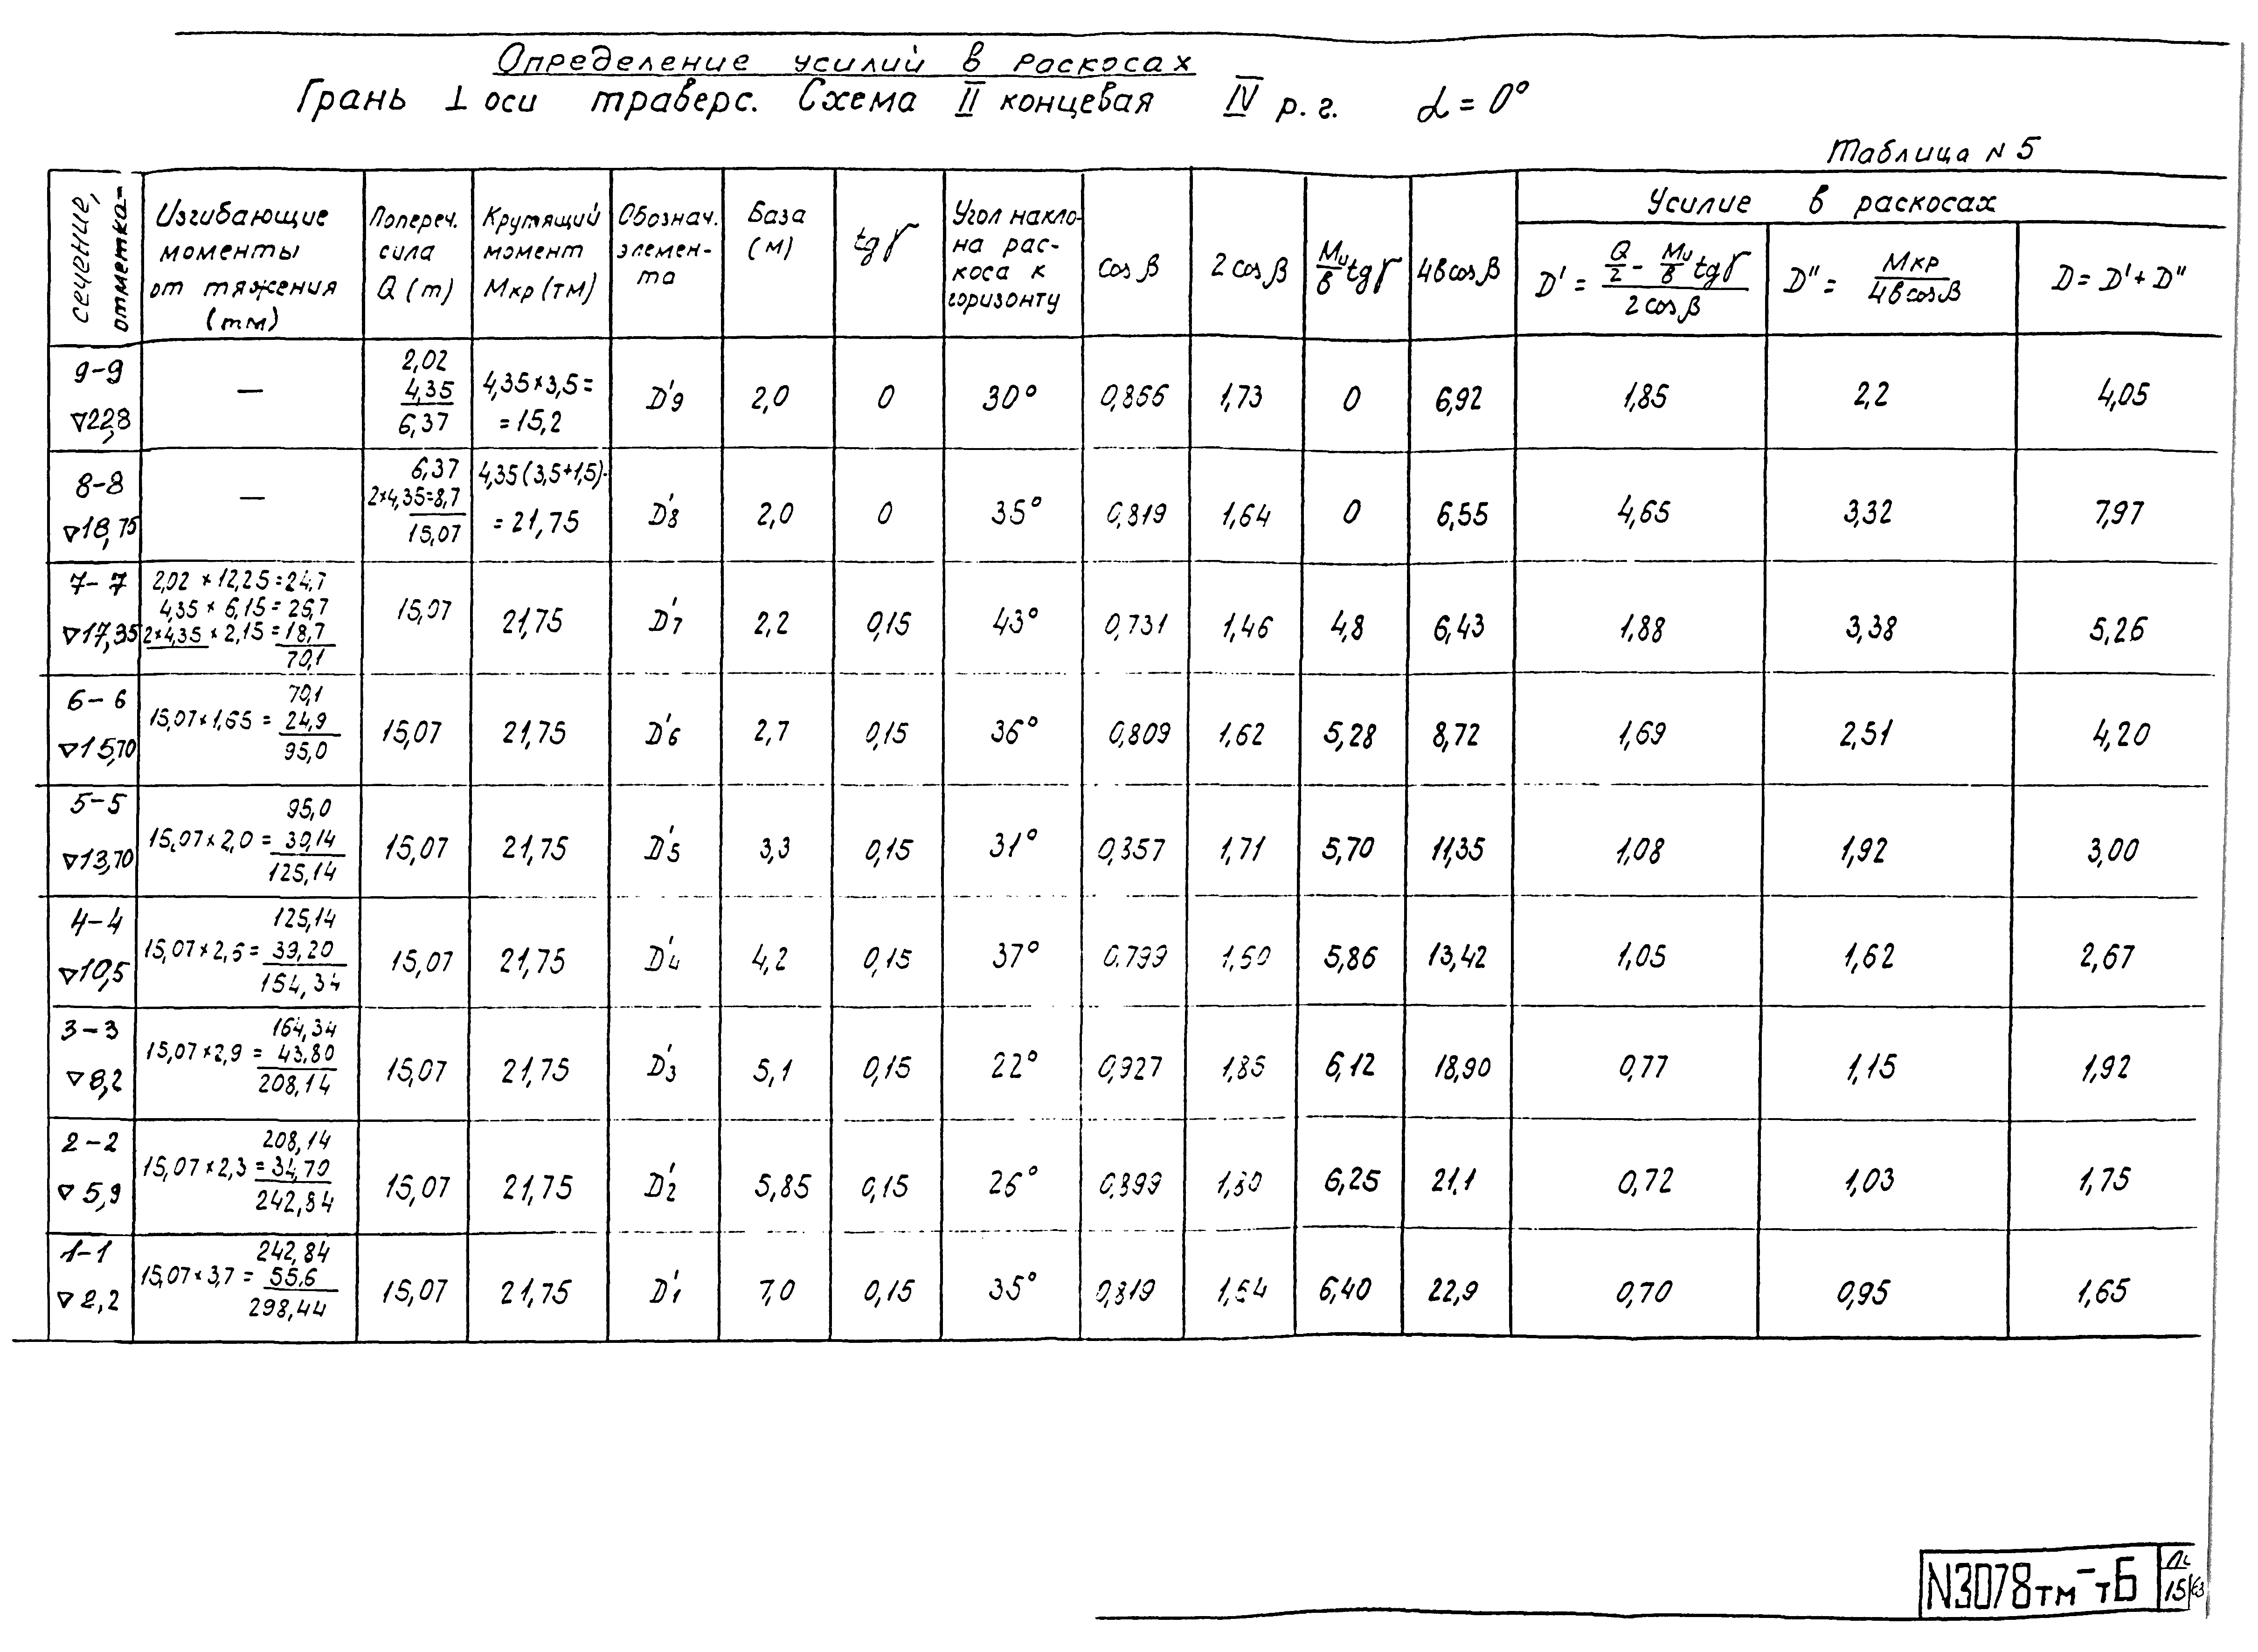 Определение усилий в раскосах
Грань ⊥ оси траверс. Схема II концевая IV р.г. α = 0°
Таблица N 5
сечение, отметка
Изгибающие моменты от тяжения (тм)
Попереч. сила Q (т)
Крутящий момент Мкр (тм)
Обознач. элемен-та
База (м)
tg γ
Угол накло-на рас-коса к горизонту
cos β
2 cos β
Mи/в tg γ
4в cos β
Усилие в раскосах
D' = (Q/2 - Mи/в tg γ) / 2 cos β
D" = Мкр / 4в cos β
D = D' + D"
9-9 ▽22,8
—
2,02 4,35 6,37
4,35×3,5= =15,2
D'9
2,0
0
30°
0,866
1,73
0
6,92
1,85
2,2
4,05
8-8 ▽18,75
—
6,37 2×4,35=8,7 15,07
4,35(3,5+1,5)· =21,75
D'8
2,0
0
35°
0,819
1,64
0
6,55
4,65
3,32
7,97
7-7 ▽17,35
2,02 × 12,25 = 24,7
4,35 × 6,15 = 26,7
2×4,35 × 2,15 = 18,7
70,1
15,07
21,75
D'7
2,2
0,15
43°
0,731
1,46
4,8
6,43
1,88
3,38
5,26
6-6 ▽15,70
70,1
15,07×1,65 = 24,9
95,0
15,07
21,75
D'6
2,7
0,15
36°
0,809
1,62
5,28
8,72
1,69
2,51
4,20
5-5 ▽13,70
95,0
15,07×2,0 = 30,14
125,14
15,07
21,75
D'5
3,3
0,15
31°
0,857
1,71
5,70
11,35
1,08
1,92
3,00
4-4 ▽10,5
125,14
15,07×2,6 = 39,20
164,34
15,07
21,75
D'4
4,2
0,15
37°
0,799
1,60
5,86
13,42
1,05
1,62
2,67
3-3 ▽8,2
164,34
15,07×2,9 = 43,80
208,14
15,07
21,75
D'3
5,1
0,15
22°
0,927
1,85
6,12
18,90
0,77
1,15
1,92
2-2 ▽5,9
208,14
15,07×2,3 = 34,70
242,84
15,07
21,75
D'2
5,85
0,15
26°
0,899
1,80
6,25
21,1
0,72
1,03
1,75
1-1 ▽2,2
242,84
15,07×3,7 = 55,6
298,44
15,07
21,75
D'1
7,0
0,15
35°
0,819
1,64
6,40
22,9
0,70
0,95
1,65
N3078тм-тБ
15